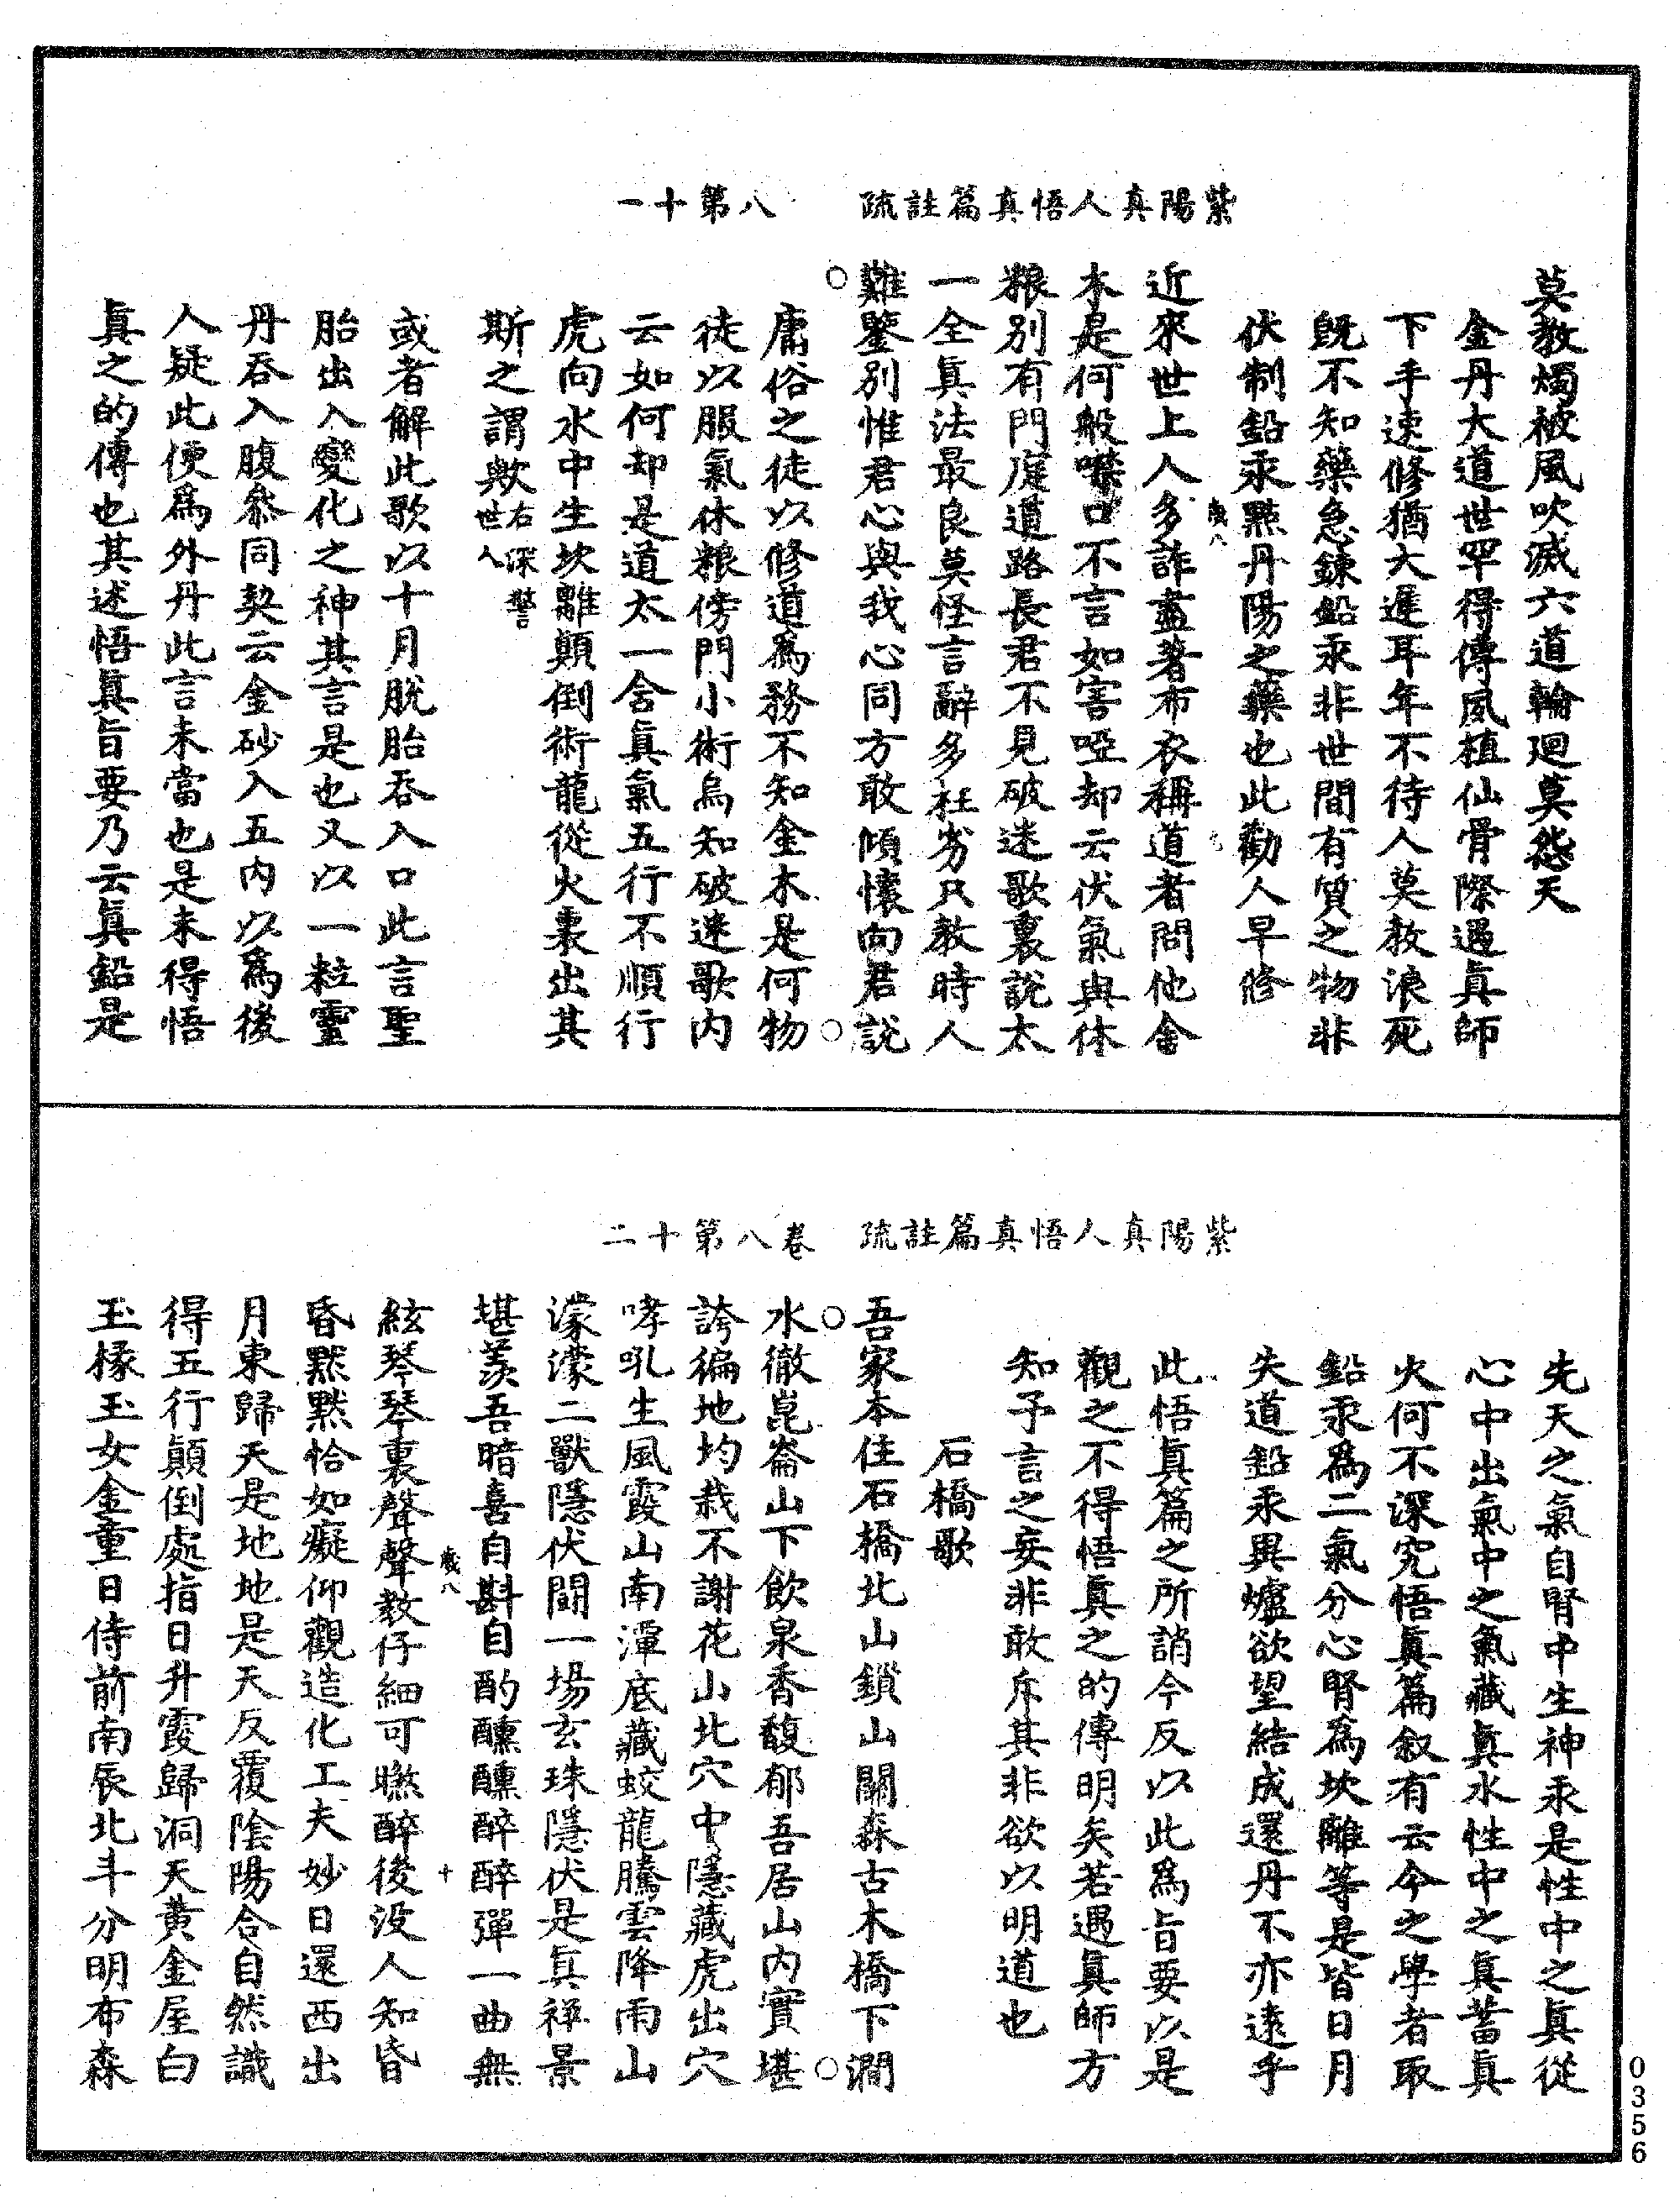 紫陽真人悟真篇註疏　八第十一
莫教燭被風吹滅六道輪迴莫怨天
金丹大道世罕得傳夙植仙骨際遇真師
下手速修猶大遲耳年不待人莫教浪死
既不知藥急鍊鉛汞非世間有質之物非
伏制鉛汞點丹陽之藥也此勸人早修
歲八
近來世上人多詐盡著布衣稱道者問他金
木是何般噤口不言如害啞却云伏氣與休
粮別有門庭道路長君不見破迷歌裏說太
一含真法最良莫怪言辭多狂劣只教時人
難鑒別惟君心與我心同方敢傾懷向君說
庸俗之徒以修道為務不知金木是何物
徒以服氣休粮傍門小術烏知破迷歌內
云如何却是道太一含真氣五行不順行
虎向水中生坎離顛倒術龍從火裏出其
斯之謂歟右深警世人
或者解此歌以十月脫胎吞入口此言聖
胎出入變化之神其言是也又以一粒靈
丹吞入腹叅同契云金砂入五內以為後
人疑此便為外丹此言未當也是未得悟
真之的傳也其述悟真旨要乃云真鉛是
紫陽真人悟真篇註疏　卷八第十二
先天之氣自腎中生神汞是性中之真從
心中出氣中之氣藏真水性中之真蓄真
火何不深究悟真篇叙有云今之學者取
鉛汞為二氣分心腎為坎離等是皆日月
失道鉛汞異爐欲望結成還丹不亦遠乎
此悟真篇之所誚今反以此為旨要以是
觀之不得悟真之的傳明矣若遇真師方
知予言之妄非敢斥其非欲以明道也
石橋歌
吾家本住石橋北山鎖山關森古木橋下澗
水徹崑崙山下飲泉香馥郁吾居山內實堪
誇徧地均栽不謝花山北穴中隱藏虎出穴
哮吼生風霞山南潭底藏蛟龍騰雲降雨山
濛濛二獸隱伏鬪一場玄珠隱伏是真祥景
堪羨吾暗喜自斟自酌醺醺醉醉彈一曲無
歲八　十
絃琴琴裏聲聲教仔細可聮醉後没人知昏
昏默默恰如癡仰觀造化工夫妙日還西出
月東歸天是地地是天反覆陰陽合自然識
得五行顛倒處指日升霞歸洞天黄金屋白
玉椽玉女金童日侍前南辰北斗分明布森
0356